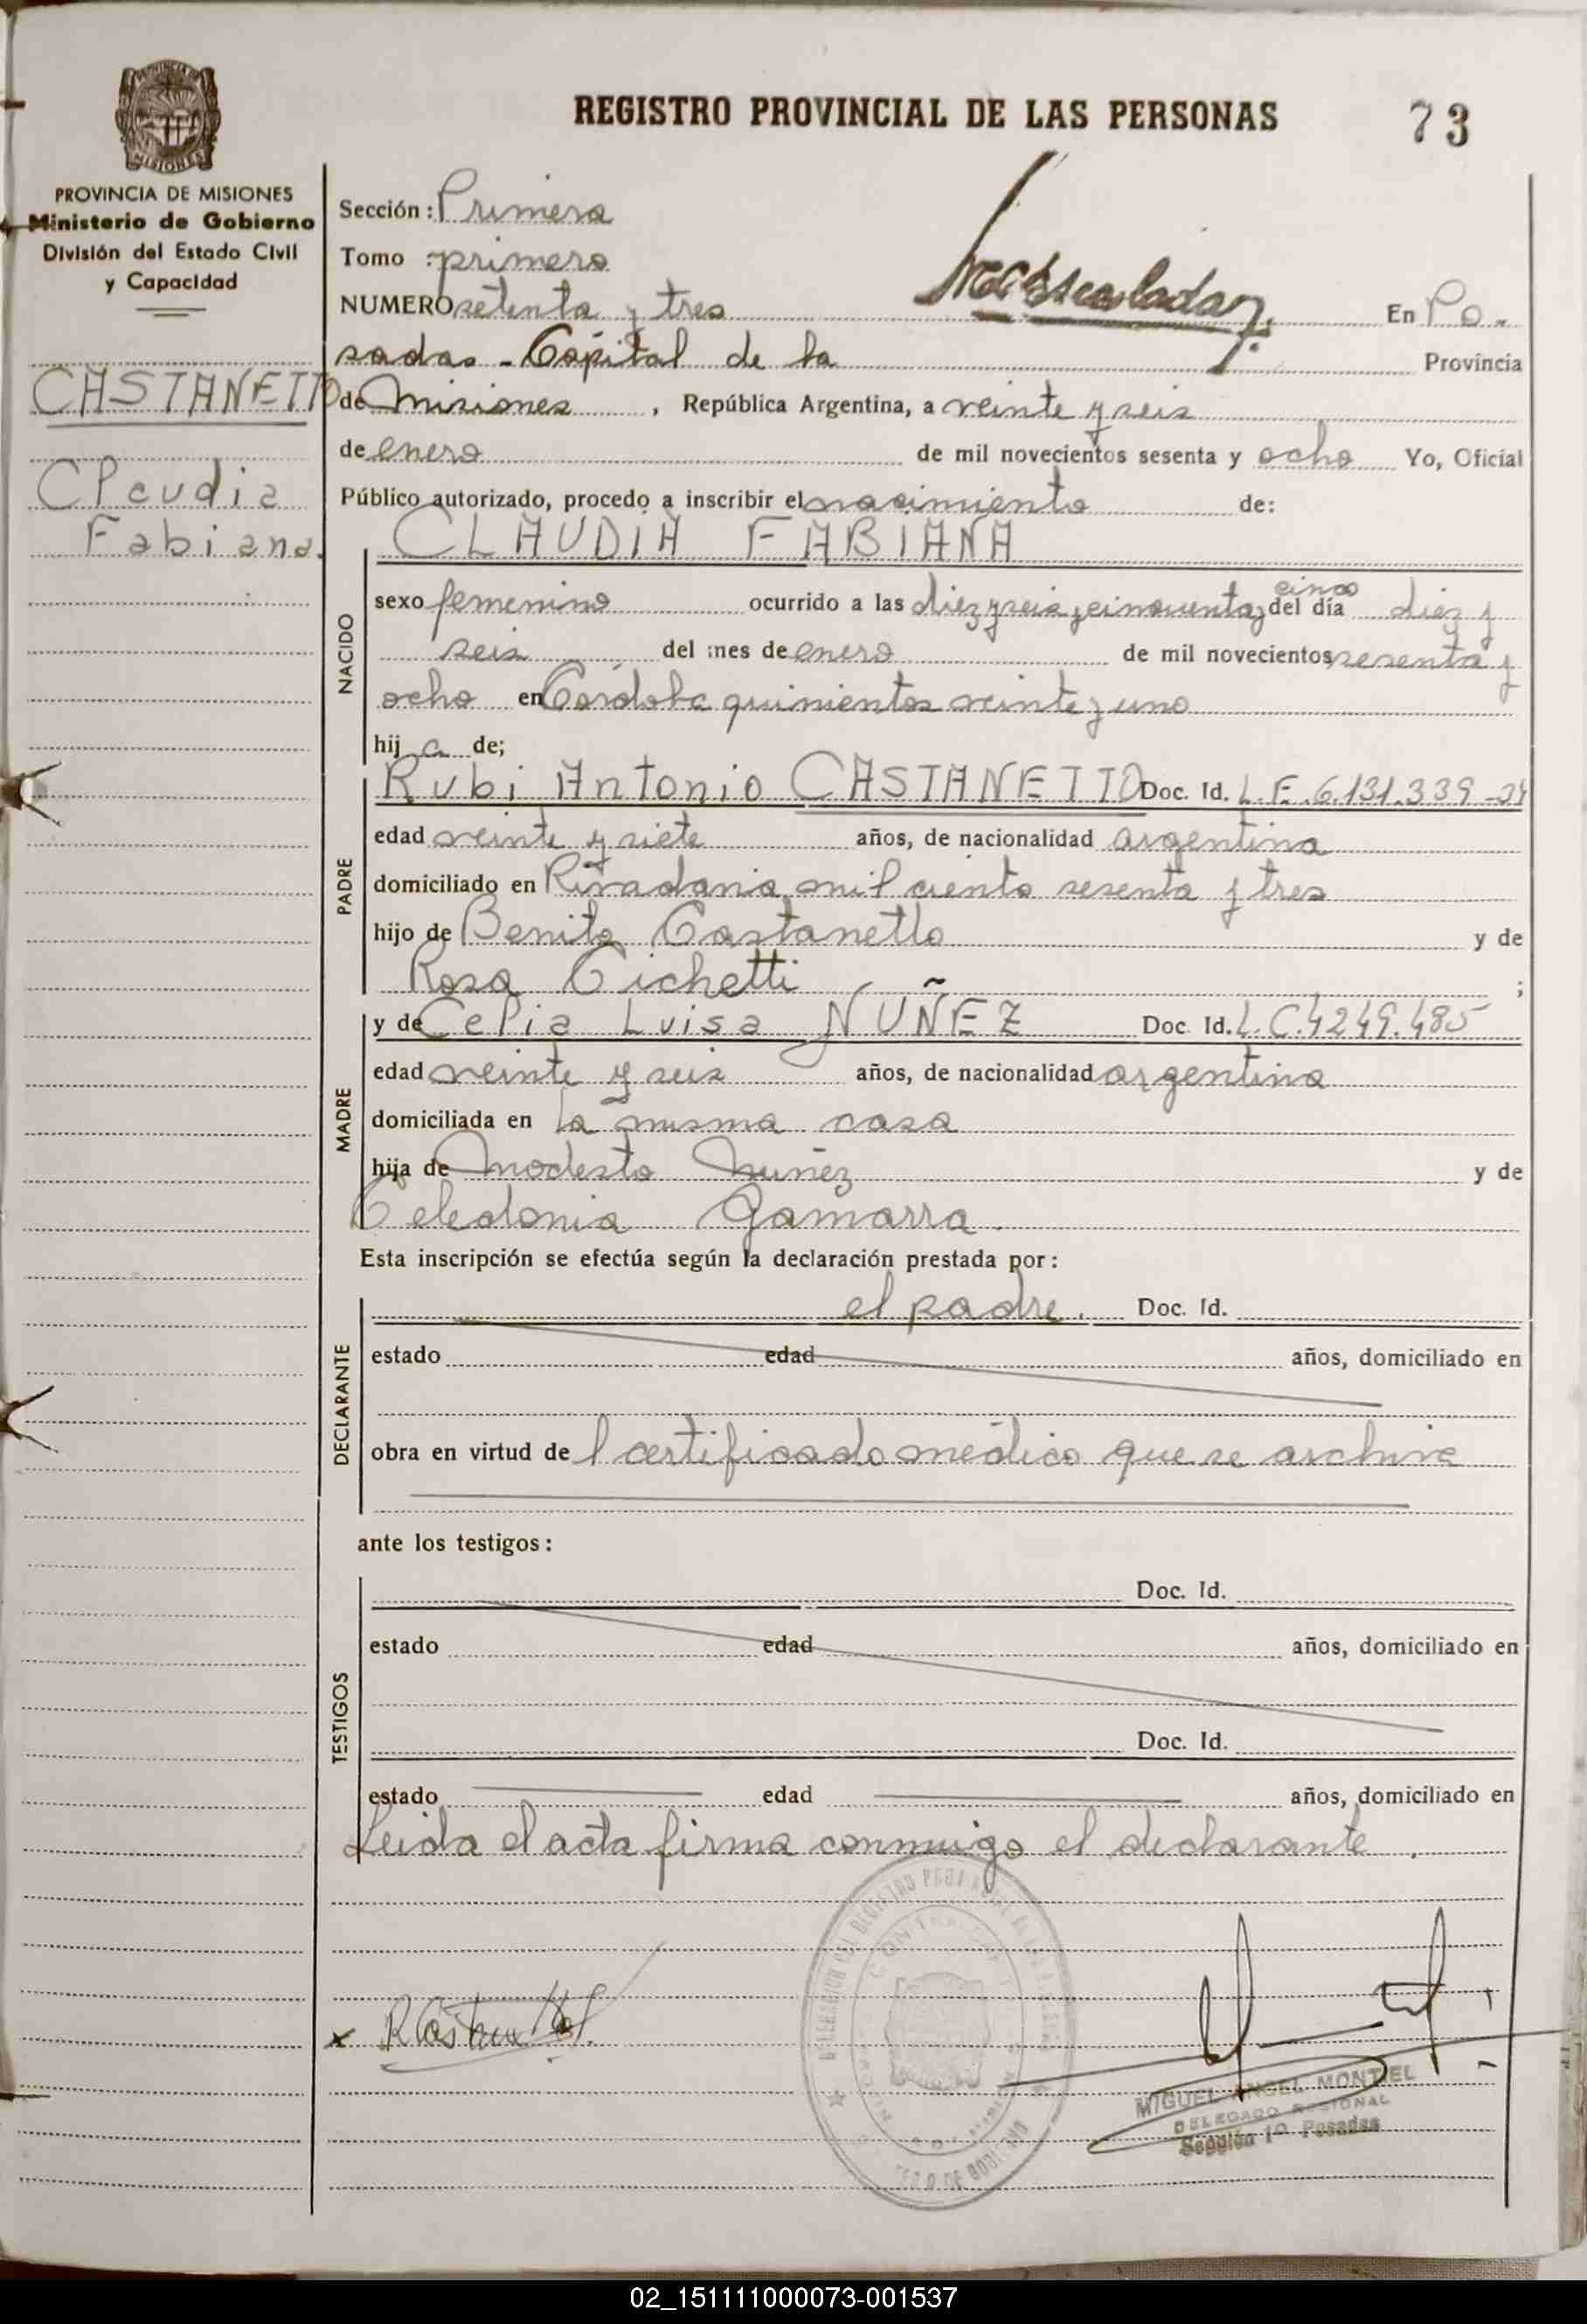 REGISTRO PROVINCIAL DE LAS PERSONAS 73
PROVINCIA DE MISIONES
Ministerio de Gobierno
División del Estado Civil
y Capacidad
CASTANETTO
Claudia
Fabiana.
Sección: Primera
Tomo : primero
NUMERO setenta y tres En Po-
sadas - Capital de la Provincia
de Misiones, República Argentina, a veinte y seis
de enero de mil novecientos sesenta y ocho Yo, Oficial
Público autorizado, procedo a inscribir el nacimiento de:
CLAUDIA FABIANA
NACIDO
cinco
sexo femenino ocurrido a las diez y seis y cincuenta y del día diez y
seis del mes de enero de mil novecientos sesenta y
ocho en Córdoba quinientos veinte y uno
hij a de;
PADRE
Rubi Antonio CASTANETTO Doc. Id. L.E. 6.131.339
edad veinte y siete años, de nacionalidad argentina
domiciliado en Rivadavia mil ciento sesenta y tres
hijo de Benito Castanetto y de
Rosa Cichetti ;
MADRE
y de Celia Luisa NUÑEZ Doc Id. L.C. 4249.485
edad veinte y seis años, de nacionalidad argentina
domiciliada en la misma casa
hija de Modesto Nuñez y de
Celedonia Gamarra.
Esta inscripción se efectúa según la declaración prestada por:
DECLARANTE
el padre. Doc. Id.
estado edad años, domiciliado en
obra en virtud de l certificado médico que se archiva
ante los testigos:
TESTIGOS
Doc. Id.
estado edad años, domiciliado en
Doc. Id.
estado edad años, domiciliado en
Leida el acta firma conmigo el declarante.
x
MIGUEL ANGEL MONTIEL
DELEGADO REGIONAL
Sección 1ª Posadas
02_151111000073-001537